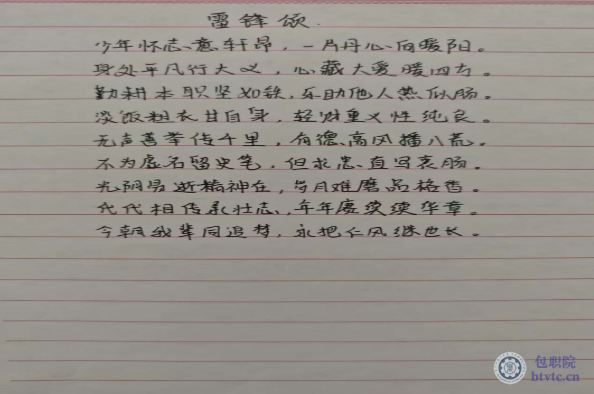 雷锋颂.
少年怀志意轩昂，一片丹心向暖阳。
身处平凡行大义，心藏大爱暖四方。
勤耕本职坚如铁，乐助他人热似肠。
淡饭粗衣甘自身，轻财重义性纯良。
无声善举传千里，有德高风播八荒。
不为虚名留史笔，但求忠直写衷肠。
光阴易逝精神在，岁月难磨品格香。
代代相传承壮志，年年赓续续华章。
今朝我辈同追梦，永把仁风继世长。
包职院
btvtc.cn